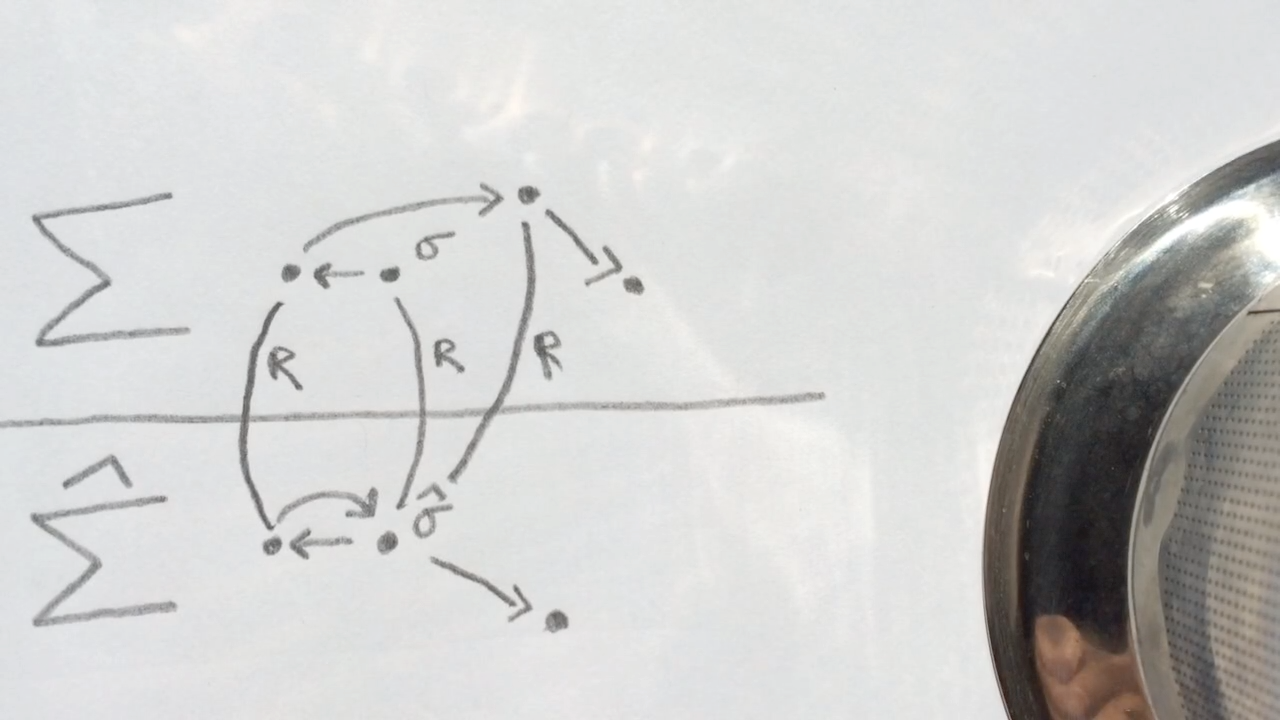 Σ σ
R R R
Σ̂ σ̂